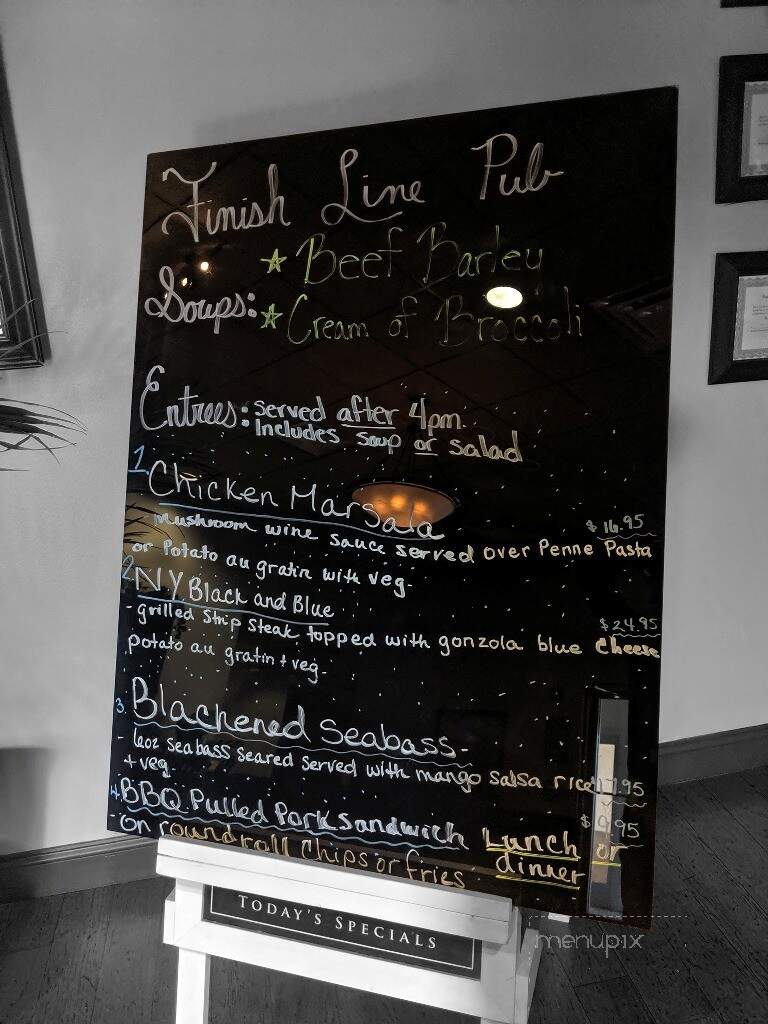 Finish Line Pub
Soups: ★ Beef Barley
★ Cream of Broccoli
Entrees: Served after 4pm.
Includes soup or salad
1. Chicken Marsala
$16.95
mushroom wine sauce served over Penne Pasta
or Potato au gratin with veg.
2. NY Black and Blue
$24.95
- grilled Strip Steak topped with gonzola blue cheese
potato au gratin + veg.
3. Blackened Seabass-
- 6oz Seabass seared served with mango salsa rice 17.95
+ veg.
4. BBQ Pulled Pork Sandwich Lunch or
- on round roll Chips or fries. dinner
TODAY'S SPECIALS
menupix